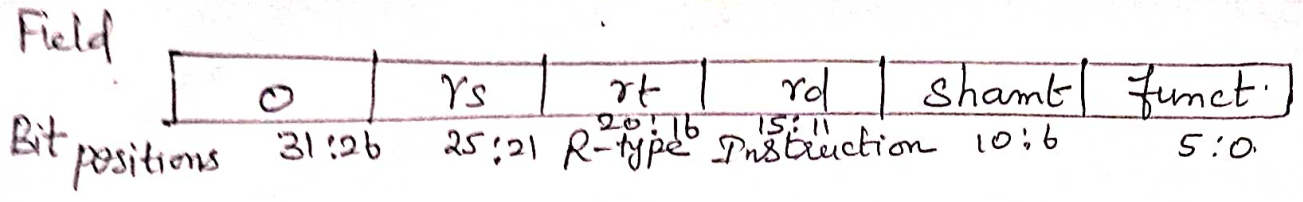 Field
0 rs rt rd shamt funct
Bit positions 31:26 25:21 20:16 15:11 10:6 5:0
R-type Instruction